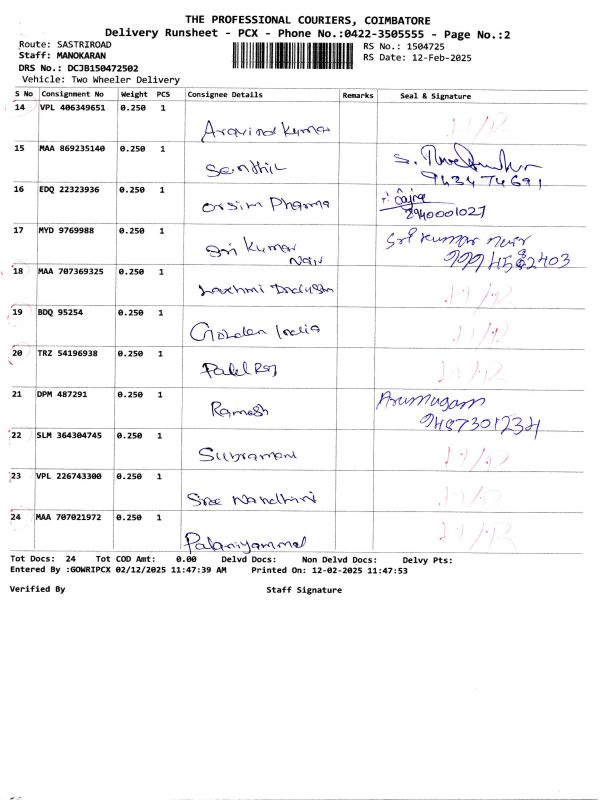 THE PROFESSIONAL COURIERS, COIMBATORE
Delivery Runsheet - PCX - Phone No.:0422-3505555 - Page No.:2
Route: SASTRIROAD RS No.: 1504725
Staff: MANOKARAN RS Date: 12-Feb-2025
DRS No.: DCJB150472502
Vehicle: Two Wheeler Delivery
S No Consignment No Weight PCS Consignee Details Remarks Seal & Signature
14 VPL 406349651 0.250 1
Aravind Kumar
15 MAA 869235140 0.250 1
Senthil
16 EDQ 22323936 0.250 1
Orsim Pharma
17 MYD 9769988 0.250 1 Sri Kumar nair
Sri Kumar
Nair
18 MAA 707369325 0.250 1
Laxhmi
19 BDQ 95254 0.250 1
Golden India
20 TRZ 54196938 0.250 1
21 DPM 487291 0.250 1 Arumugam
Ramesh 9487301234
22 SLM 364304745 0.250 1
Subramani
23 VPL 226743300 0.250 1
Sree Nandhini
24 MAA 707021972 0.250 1
Palaniyammal
Tot Docs: 24 Tot COD Amt: 0.00 Delvd Docs: Non Delvd Docs: Delvy Pts:
Entered By :GOWRIPCX 02/12/2025 11:47:39 AM Printed On: 12-02-2025 11:47:53
Verified By Staff Signature